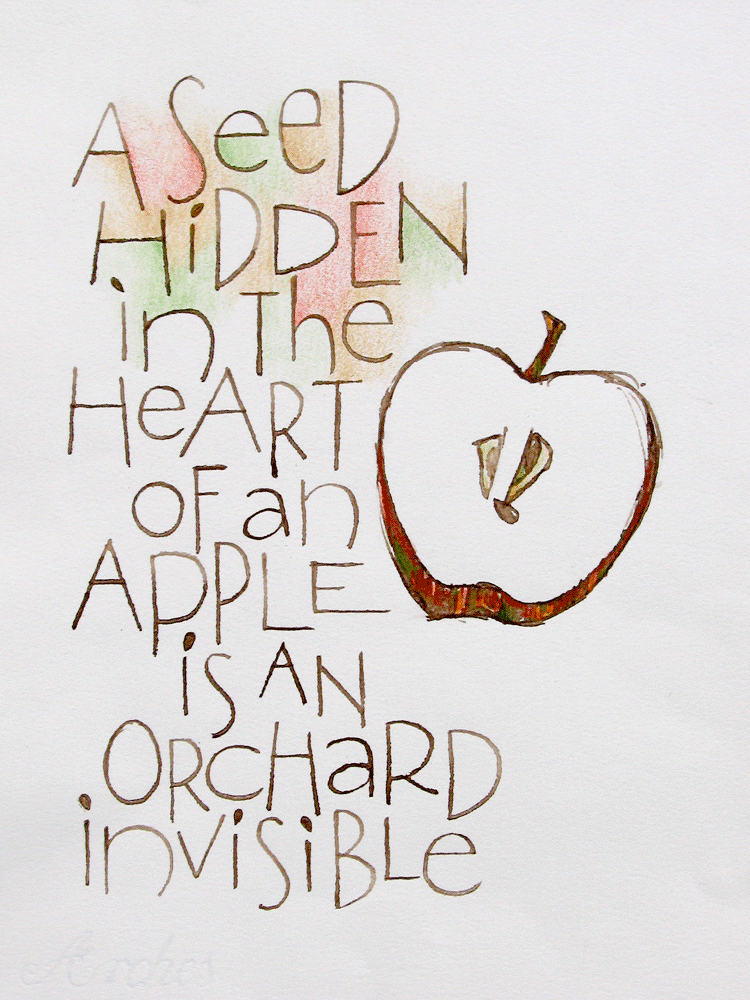 A SeeD
HiDDEN
in The
HeART
OF an
APPLE
iS AN
ORCHaRD
inViSiBLe
Arches